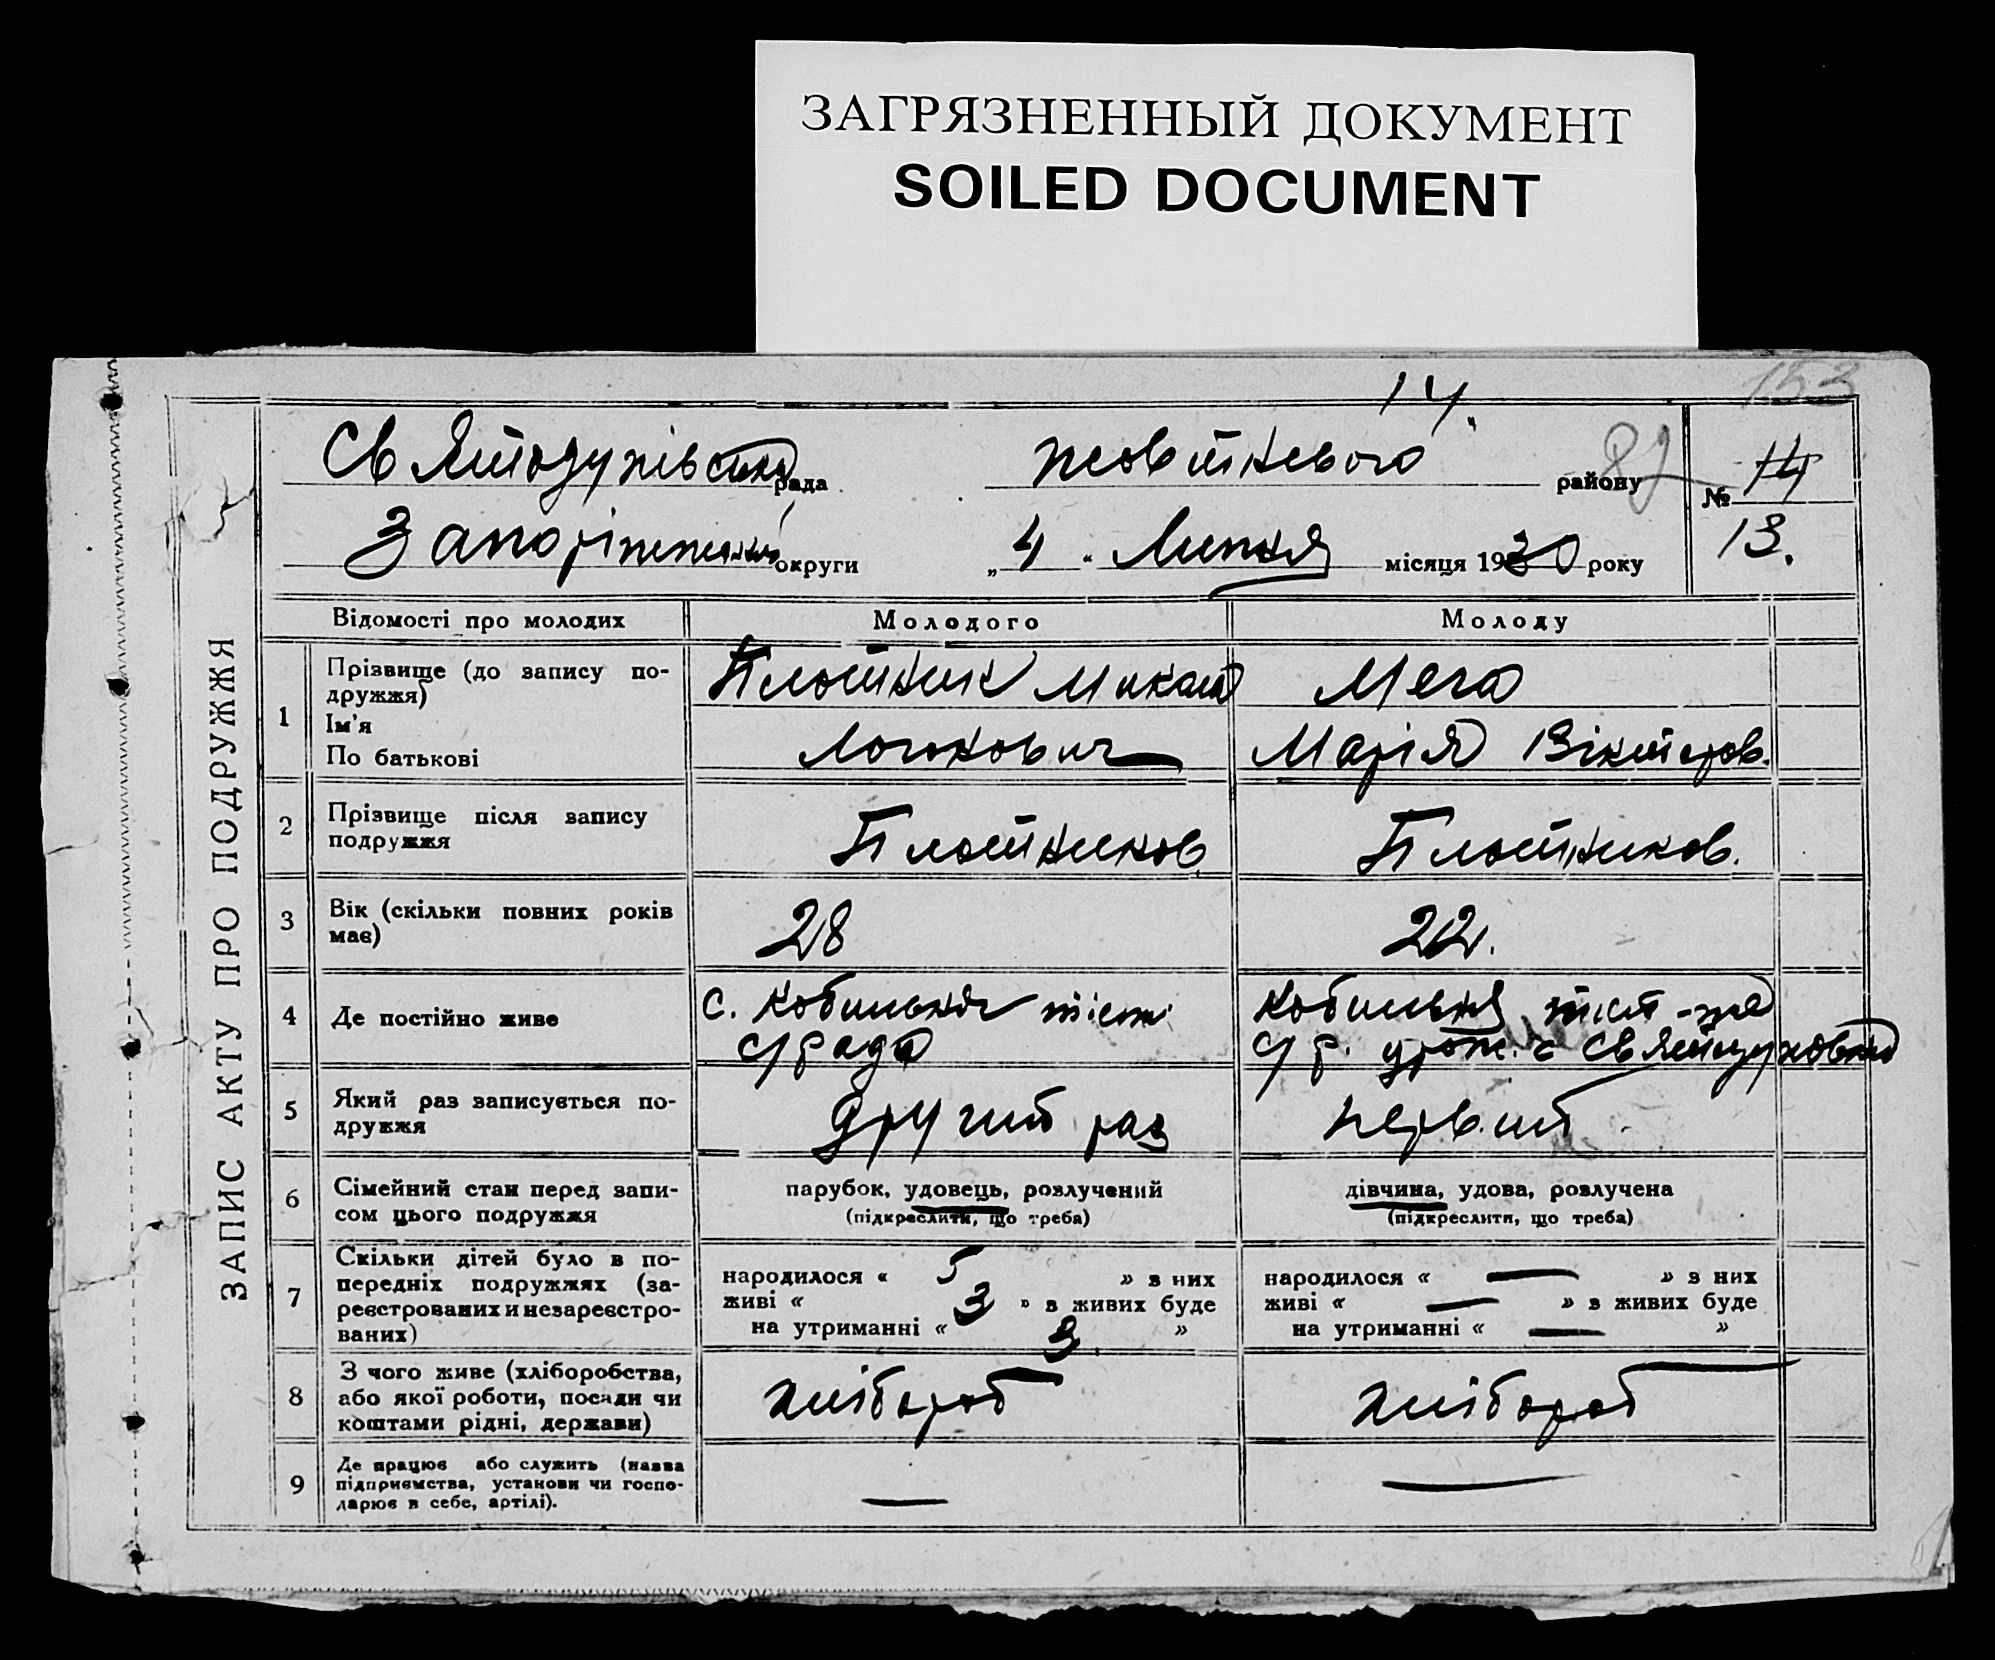 ЗАГРЯЗНЕННЫЙ ДОКУМЕНТ
SOILED DOCUMENT
153
14
рада
Жовтневого району
82
№ 14
13.
округи
„ 4 “ Липня місяця 1930 року
ЗАПИС АКТУ ПРО ПОДРУЖЖЯ
Відомості про молодих
Молодого
Молоду
1
Прізвище (до запису по-
дружжя)
Ім'я
По батькові
Плотник
Мега
Марія Віктеров.
2
Прізвище після запису
подружжя
Плотников
Плотников.
3
Вік (скільки повних років
має)
28
22.
4
Де постійно живе
с.
с/рада
с/р. урож. с
5
Який раз записується по-
дружжя
другий раз
первий
6
Сімейний стан перед запи-
сом цього подружжя
парубок, удовець, розлучений
(підкреслити, що треба)
дівчина, удова, розлучена
(підкреслити, що треба)
7
Скільки дітей було в по-
передніх подружжях (за-
реєстрованих и незареєстро-
ваних)
народилося « 5 » з них
живі « 3 » з живих буде
на утриманні « 3 »
народилося « — » з них
живі « — » з живих буде
на утриманні « — »
8
З чого живе (хліборобства,
або якої роботи, посади чи
коштами рідні, держави)
хлібороб
хлібороб
9
Де працює або служить (назва
підприємства, установи чи госпо-
дарює в себе, артілі).
—
—